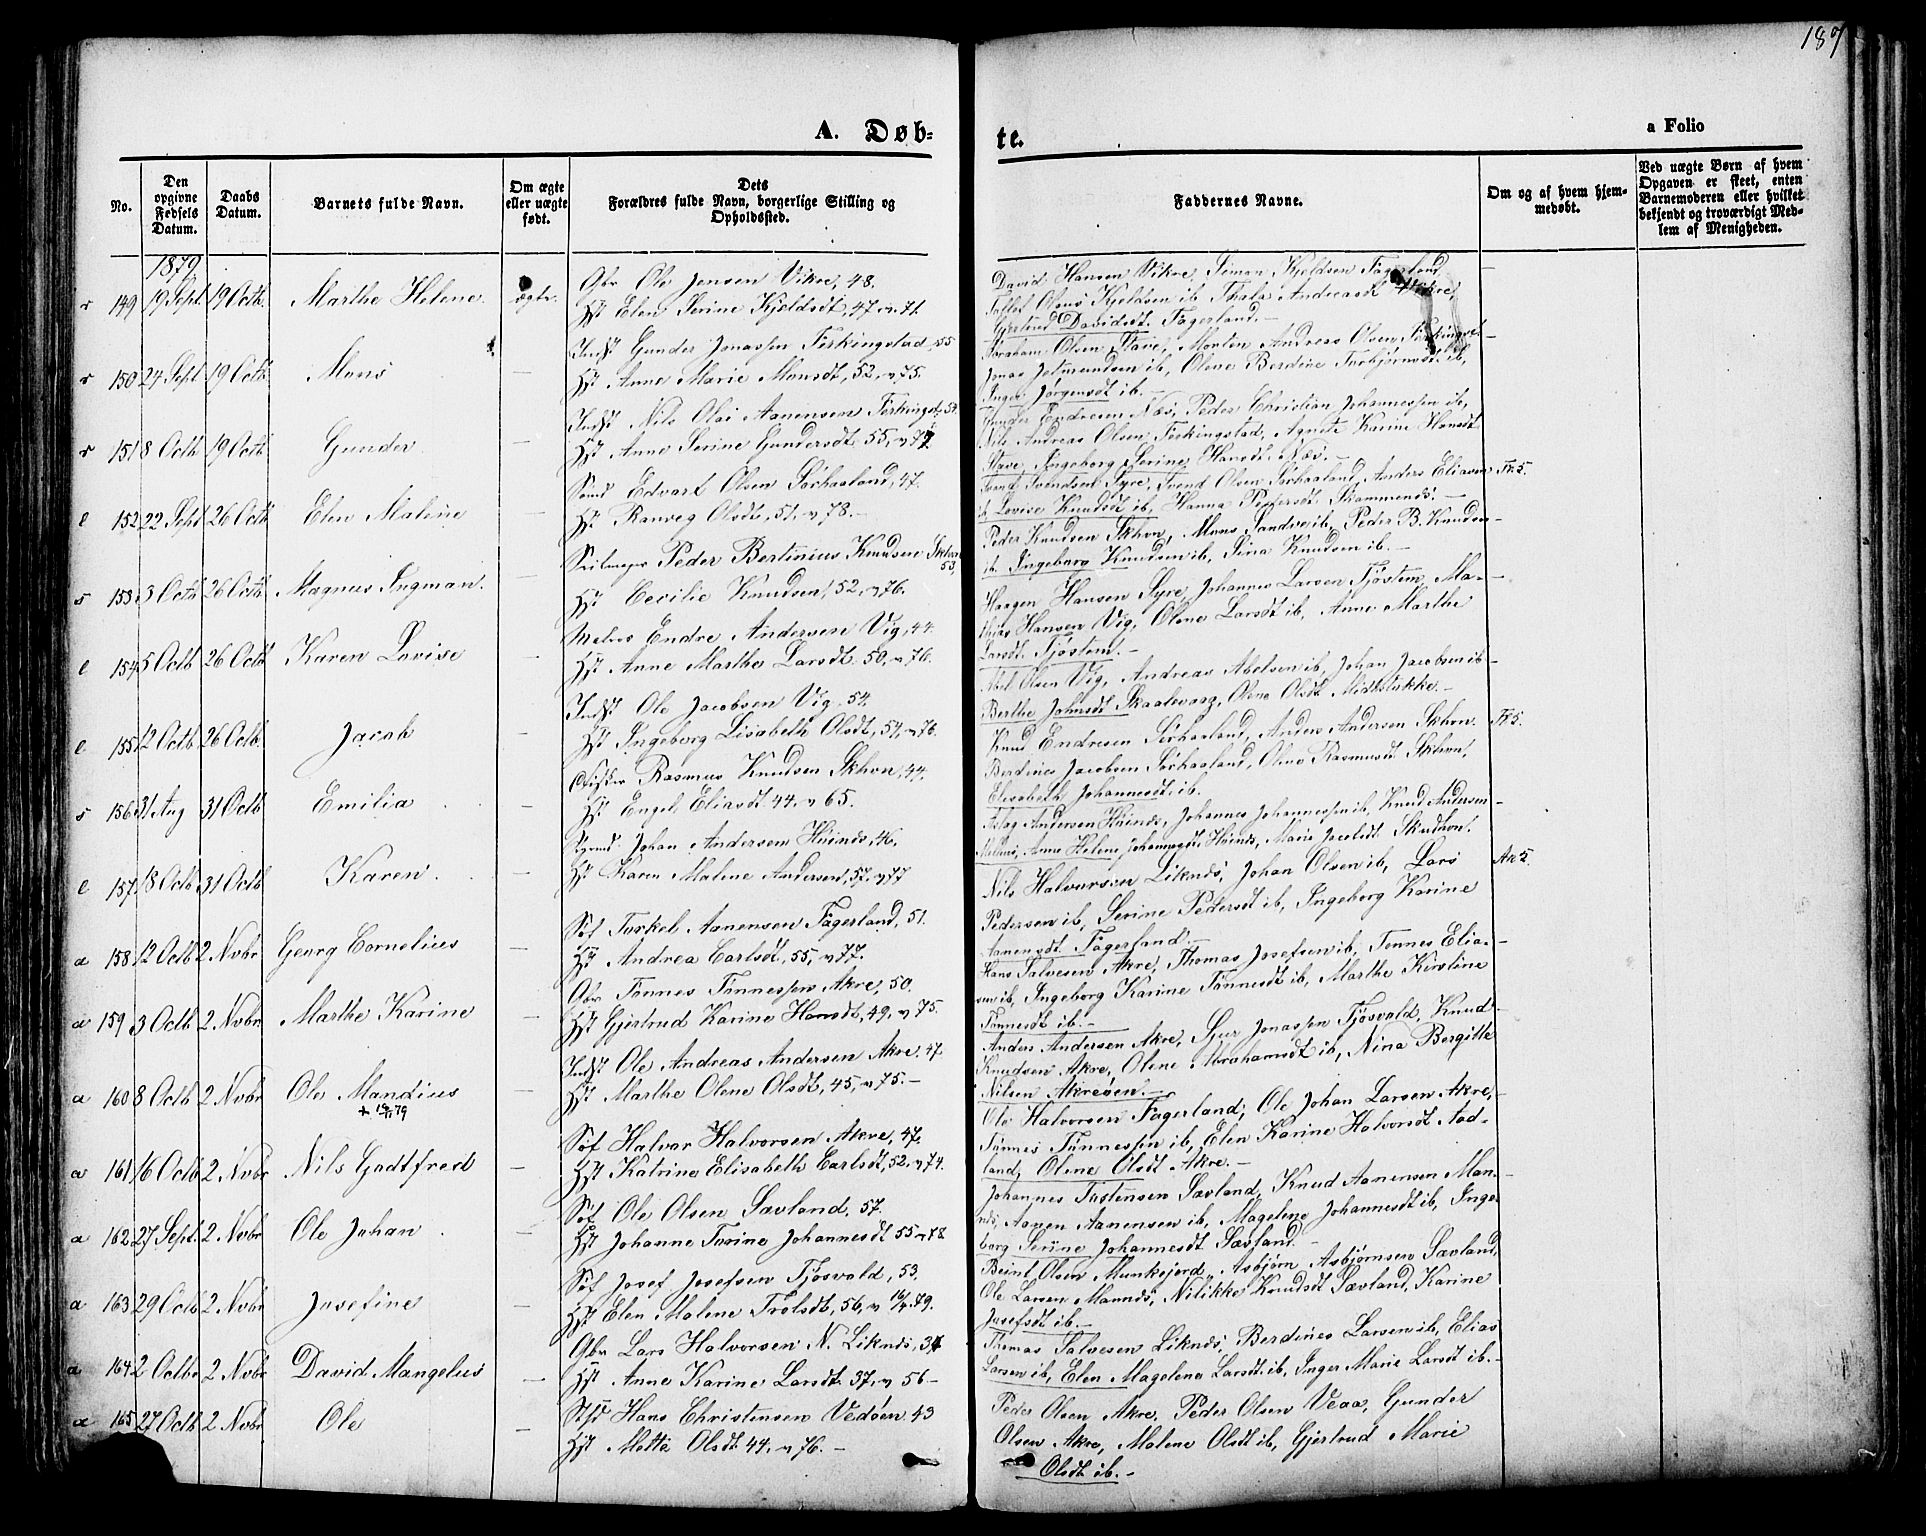 187
A. Døb-
te.
a Folio
No.
Den opgivne Fødsels Datum.
Daabs Datum.
Barnets fulde Navn.
Om ægte eller uægte født.
Dets Forældres fulde Navn, borgerlige Stilling og Opholdssted.
Faddernes Navne.
Om og af hvem hjemmedøbt.
Ved uægte Børn af hvem Opgaven er skeet, enten Barnemoderen eller hvilket bekjendt og troværdigt Medlem af Menigheden.
1879
r 149 19 Sept 19 Octb. Marthe Helene. ægte.
Gbr Ole Jensen Vikre, 48.
Hst Elen Serine Kjeldsdt, 47 v 71.
David Hansen Vikre, Simon Kjeldsen Fagerland,
Tollef Olsens Kjeldsen ib Thala Andreasdt Vikre,
Gjertrud Davidsdt. Fagerland. –
r 150 24 Sept 19 Octb Mons –
Indst Gunder Jonassen Ferkingstad, 55
Hst Anne Marie Monsdt, 52, v 75.
Abraham Olsen Stave, Morten Andreas Olsen Ferkingst
Jonas Jetmundsen ib, Olene Berdine Torbjørnsdt ib,
Inger Jørgensdt ib. –
r 151 8 Octb 19 Octb Gunder –
Indst Nils Olai Aanensen Ferkingst, 54
Hst Anne Serine Gundersdt 55, v 77
Gunder Endresen Næs, Peder Christian Johannessen ib,
Nils Andreas Olsen Ferkingstad, Agnete Karine Hansdt
Stave, Ingeborg Serine Hansdt. Næs. –
l 152 22 Sept 26 Octb Elen Malene –
Edvart Olsen Sørhaaland, 47.
Hst Ranveg Olsdt, 51, v 78. –
Svend Svendsen Syre, Svend Olsen Sørhaaland, Anders Eliasen
ib Lovise Knudsdt ib, Hanna Pedersdt. –
s 153 3 Octb 26 Octb Magnus Ingman. –
Seilmager Peder Bertinius Knudsen 53
Hst Cecilie Knudsen, 52, v 76.
Peder Knudsen, Mons Sandve ib, Peder B. Knudsen
ib. Ingeborg Knudsen ib, Sina Knudsen ib. –
l 154 5 Octb 26 Octb Karen Lovise –
Matros Endre Andersen Vig, 44.
Hst Anne Marthe Larsdt. 50, v 76.
Haagen Hansen Syre, Johannes Larsen Tjøstem, Ma-
thias Hansen Vig, Olene Larsdt ib, Anne Marthe
Larsdt. Tjøstem. –
l 155 12 Octb 26 Octb. Jacob –
Indst Ole Jacobsen Vig, 54.
Hst Ingeborg Lisabeth Olsdt, 54, v 76.
Abel Olsen Vig, Andreas Abelsen ib, Johan Jacobsen ib –
Berthe Johnsdt Skaalevaag, Olene Olsdt Midtstokke. –
s 156 31 Aug 31 Octb Emilia –
Rasmus Knudsen, 44.
Hst Engel Eliasdt 44, v 65.
Knud Endresen Sørhaaland, Anders Andersen
Berdines Jacobsen Sørhaaland, Olene Rasmusdt
Elisabeth Johannesdt. ib.
l 157 18 Octb. 31 Octb Karen. –
Johan Andersen, 46.
Hst Karen Malene Andersen, 57, v 77
Aslag Andersen, Johannes Johannessen ib, Knud Andersen
Anne Helene Johannesdt, Marie Jacobsdt
a 158 12 Octb 2 Nvbr. Georg Cornelius –
Søf Torkel Aanensen Fagerland, 51.
Hst Andrea Carlsdt, 55, v 77.
Nils Halvorsen Liknes, Johan Olsen ib, Lars
Pedersen ib, Serine Pedersdt ib, Ingeborg Karine
Aanensdt. Fagerland. –
a 159 3 Octb 2 Nvbr Marthe Karine –
Gbr Tønnes Tønnessen Akre, 50.
Hst Gjertrud Karine Hansdt, 49, v 75.
Hans Salvesen Akre, Thomas Josefsen ib, Tønnes Elia-
sen ib, Ingeborg Karine Tønnesdt ib, Marthe Kirstine
Tønnesdt ib. –
a 160 8 Octb 2 Nvbr Ole Mandius –
Indst Ole Andreas Andersen Akre, 47.
Hst Marthe Olene Olsdt, 45, v 75. –
Anders Andersen Akre, Sjur Jonassen Tjøsvold, Knud
Knudsen Akre, Olene Abrahamsdt ib, Nina Bergitte
Nilsen Akreøen. –
a 161 16 Octb 2 Nvbr Nils Godtfred –
Søf Halvar Halvorsen Akre, 47.
Hst Katrine Elisabeth Carlsdt, 52, v 74.
Ole Halvorsen Fagerland, Ole Johan Larsen Akre,
Tønnes Tønnessen ib, Elen Karine Halvorsdt Aad-
land, Olene Olsdt Akre. –
a 162 27 Sept. 2 Nvbr Ole Johan –
Søf Ole Olsen Sævland, 57.
Hst Johanne Torine Johannesdt 55 v 78
Johannes Tostensen Sævland, Knud Aanensen Man-
nes, Aanen Aanensen ib, Magelene Johannesdt ib, Inge-
borg Serine Johannesdt Sævland. –
a 163 29 Octb 2 Nvbr Josefine –
Søf Josef Josefsen Tjøsvold, 53.
Hst Elen Malene Trolsdt, 56, v 79.
Beint Olsen Munkejord, Asbjørn Asbjørnsen Sævland,
Ole Larsen Mannes, Nilikke Knudsdt Sævland, Karine
Josefsdt ib. –
a 164 2 Octbr 2 Nvbr David Mangelus –
Gbr Lars Halvorsen N. Liknes, 34
Hst Anne Karine Larsdt. 37, v 56 –
Thomas Salvesen Liknes, Berdines Larsen ib, Elias
Larsen ib, Elen Magelena Larsdt. ib, Inger Marie Larsdt ib. –
a 165 27 Octb 2 Nvbr Ole –
Hans Christensen Vedøen. 43
Hst Mette Olsdt 44, v 76. –
Peder Olsen Akre, Peder Olsen Veaa, Gunder
Olsen Akre, Malene Olsdt ib, Gjertrud Marie
Olsdt ib. –